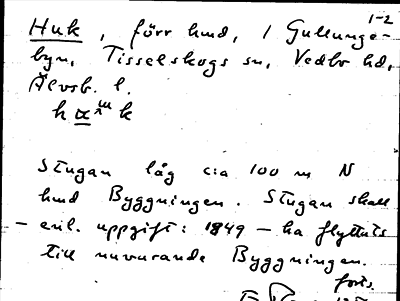 1-2
Huk, förr hmd, i Gullunge-
byn, Tisselskogs sn, Vedbo hd,
Älvsb. l.
Stugan låg c:a 100 m N
hmd Byggningen. Stugan skall
– enl. uppgift: 1849 – ha flyttats
till nuvarande Byggningen.
forts.